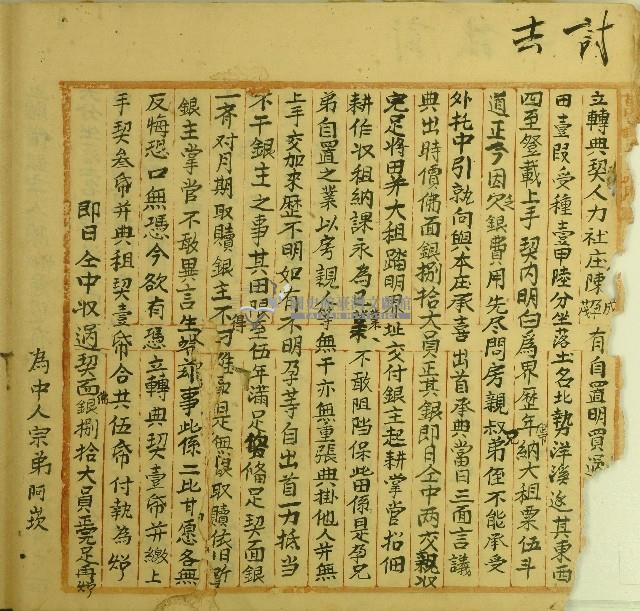 討去
立轉典契人力社庄陳 有自置明買過
田壹段受種壹甲陸分坐落土名北勢洋溪边其東西
四至登載上手契内明白為界歷年納大租粟伍斗
道正今因欠銀費用先尽問房親叔兄弟侄不能承受
外托中引就向與本庄承喜出首承典當日三面言議
典出時價佛面銀捌拾大員正其銀即日仝中兩交親收
完足將田并大租踏明 址交付銀主起耕掌管招佃
耕作收租納課永為 業不敢阻擋保此田係是孕兄
弟自置之業以房親 等無干亦無重張典掛他人并無
上手交加來歷不明如有不明孕等自出首一力抵当
不干銀主之事其田限至伍年滿足 備足契面銀
一齊对月期取贖銀主不得刁难 是無銀取贖依旧
銀主掌管不敢異言生端 事此係二比甘愿各無
反悔恐口無憑今欲有憑立轉典契壹帋并繳上
手契叁帋并典租契壹帋合共伍帋付執為炤
即日仝中收過契面佛銀捌拾大員正完足再炤
為中人宗弟阿崁